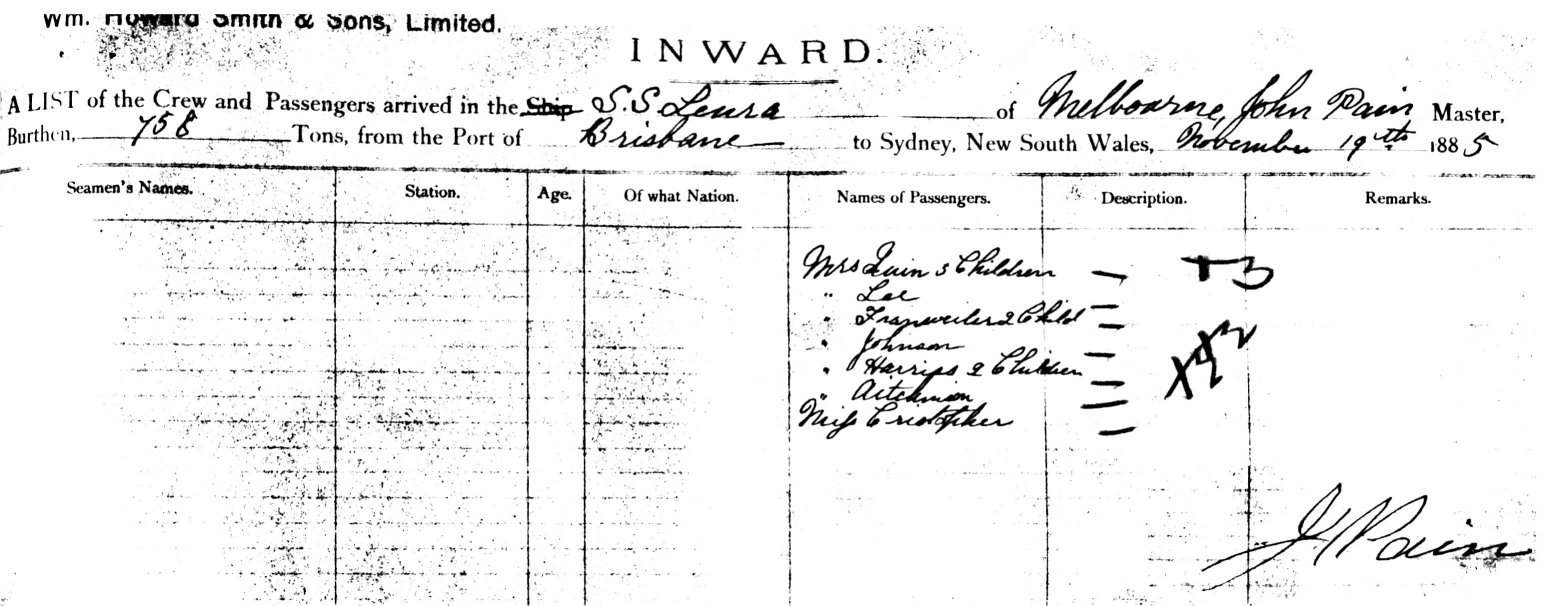 Wm. Howard Smith & Sons, Limited.
INWARD.
A LIST of the Crew and Passengers arrived in the Ship S.S Leura of Melbourne, John Pain Master,
Burthen, 758 Tons, from the Port of Brisbane to Sydney, New South Wales, November 19th 1885
Seamen's Names. Station. Age. Of what Nation. Names of Passengers. Description. Remarks.
Mrs Children
" Lee
" & Child
" Johnson
" Harriss 2 Children
" Aitchison
Miss Cristopher
J Pain